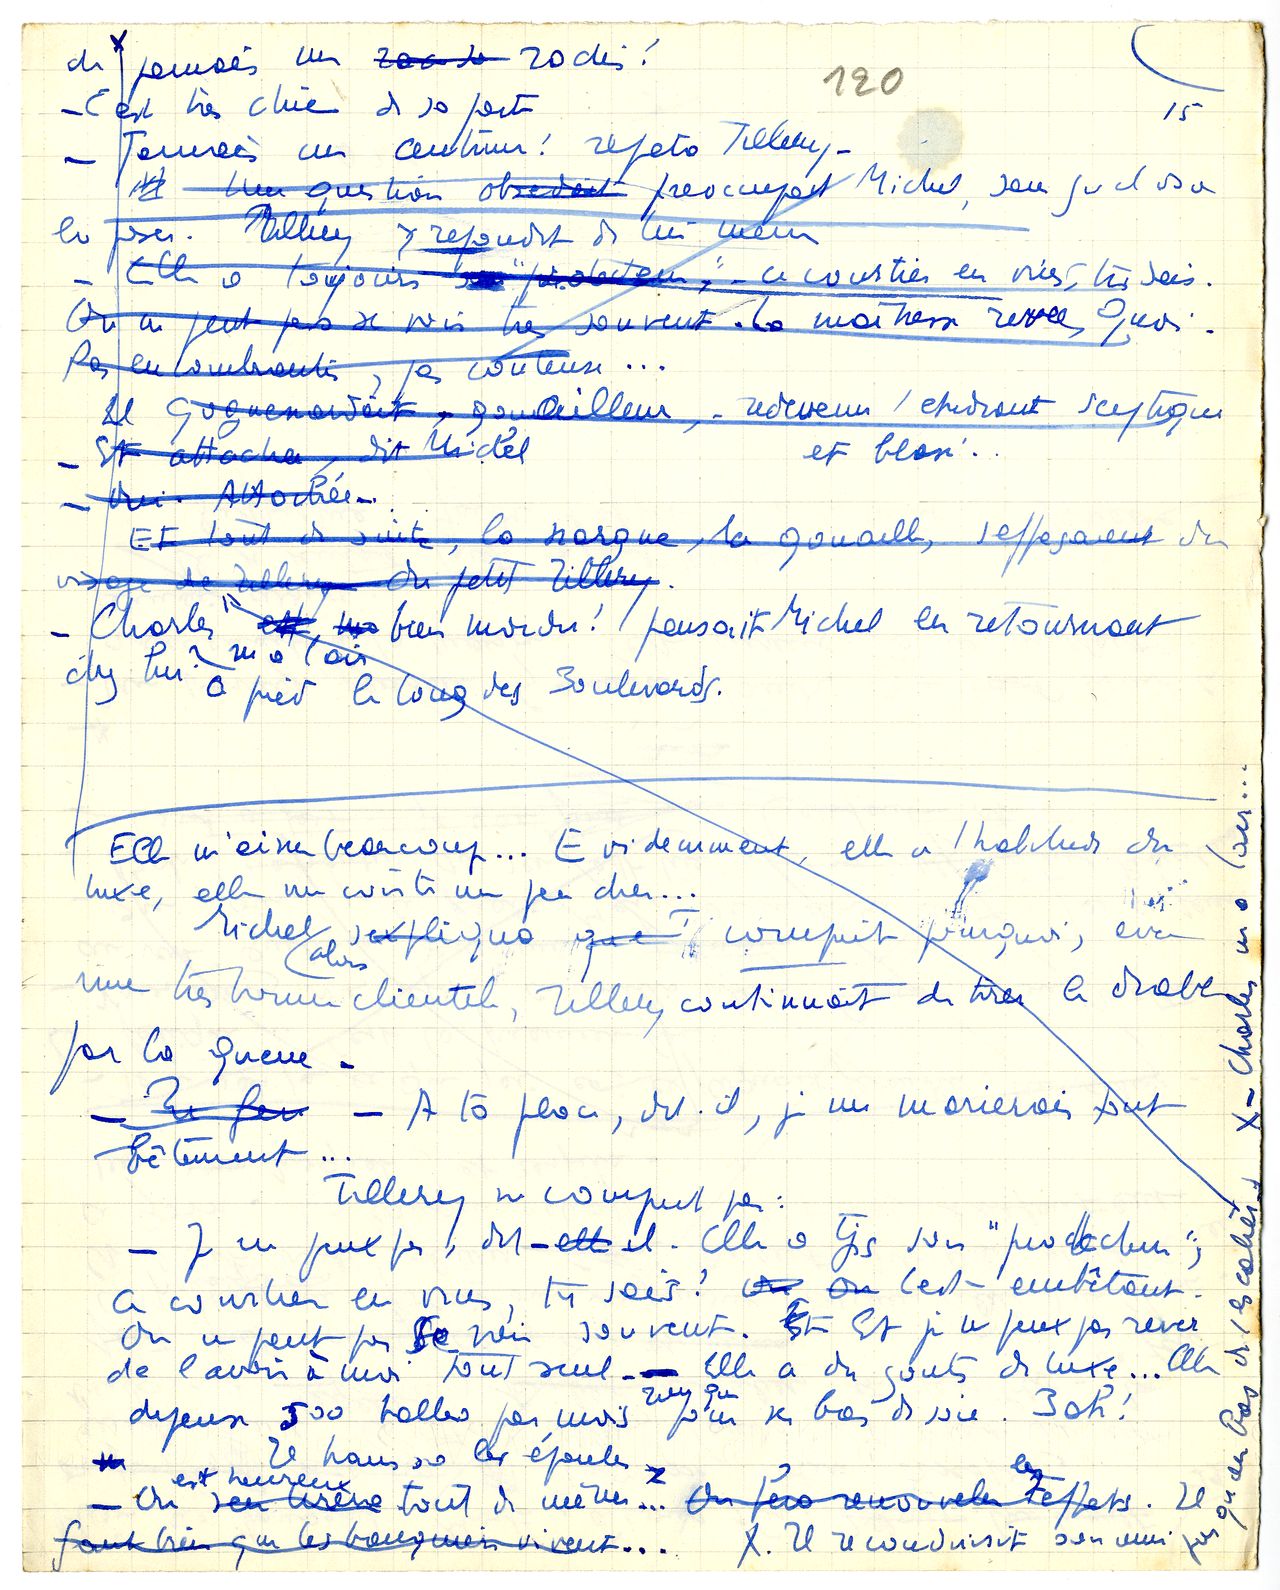 de jamais un radis !
120
15
- C'est très chic de sa part
- Jamais un centime ! répéta Tillery -
Une question obsédait préoccupait Michel, sans qu'il osa
la poser. Tillery y répondit de lui même
- Elle a toujours son "protecteur", - ce courtier en vins, tu sais.
On ne peut pas se voir très souvent. La maîtresse rêvée, Quoi.
Pas encombrante, pas couteuse ...
Il goguenardait, gouailleur, - redevenu l'étudiant sceptique
et blasé ..
- Et attachée, dit Michel
- Oui. Attachée -
Et tout de suite, la nargue, la gouaille, s'effaçaient du
visage de Tillery du petit Tillery.
- Charles est, bien mordu ! pensait Michel en retournant
m'a l'air
chez lui
à pied le long des Boulevards.
Elle m'aime beaucoup... Evidemment, elle a l'habitude du
luxe, elle me coûte un peu cher...
Michel s'expliqua que comprit pourquoi, avec
alors
une très bonne clientèle, Tillery continuait de tirer le diable
par la queue -
- - A ta place, dit-il, je me marierais tout
bêtement ...
Tillery ne comprit pas :
- Je ne peux pas, dit-elle il. Elle a tjs son "protecteur",
ce courtier en vins, tu sais ? On C'est embêtant.
On ne peut pas se voir souvent. Et Et je ne peux pas rêver
de l'avoir à moi tout seul - Elle a des goûts de luxe... Elle
rien que
dépense 500 balles par mois pour ses bas de soie. Bah !
Il haussa les épaules
est heureux
- On tout de même... On fera renouveler les effets. Il
faut bien que les banquiers vivent... X. Il reconduisit son ami
jusqu'en bas de l'escalier X - Charles m'a l'air...